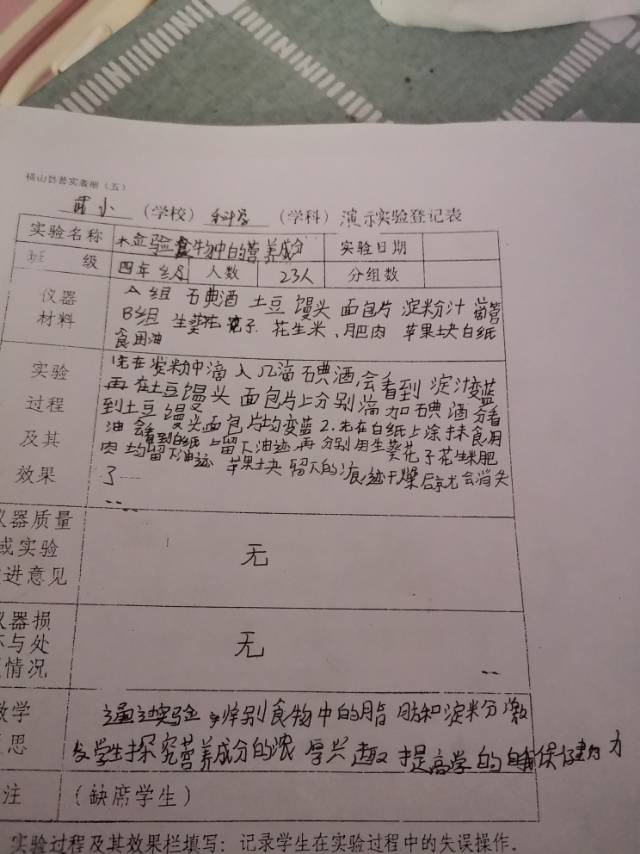 横山县普实表册（五）
小 （学校） 科学 （学科） 演示实验登记表
实验名称 检验食物中的营养成分 实验日期
班 级 四年级 人数 23人 分组数
仪器 A组 石典酒 土豆 馒头 面包片 淀粉汁 滴管
材料 B组 生葵花籽 花生米、肥肉 苹果块白纸
食用油
实验 先在淀粉中滴入几滴石典酒,会看到淀汁变蓝
再在土豆馒头 面包片上分别滴加石典酒 会看
过程 到土豆 馒头 面包片均变蓝2.先在白纸上涂抹食用
及其 油 会看到白纸上留下油迹,再分别用生葵花子花生米肥
肉均留下油迹 苹果块留下的痕迹干燥后就会消失
效果 了
仪器质量
或实验 无
进意见
仪器损
坏与处 无
情况
教学 通过实验 辨别食物中的脂肪和淀米分 激
思 发学生探究营养成分的浓厚兴趣 提高学的自我保健力
注 （缺席学生）
实验过程及其效果栏填写：记录学生在实验过程中的失误操作.